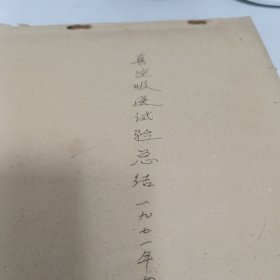 真空吸浸试验总结 一九七一年